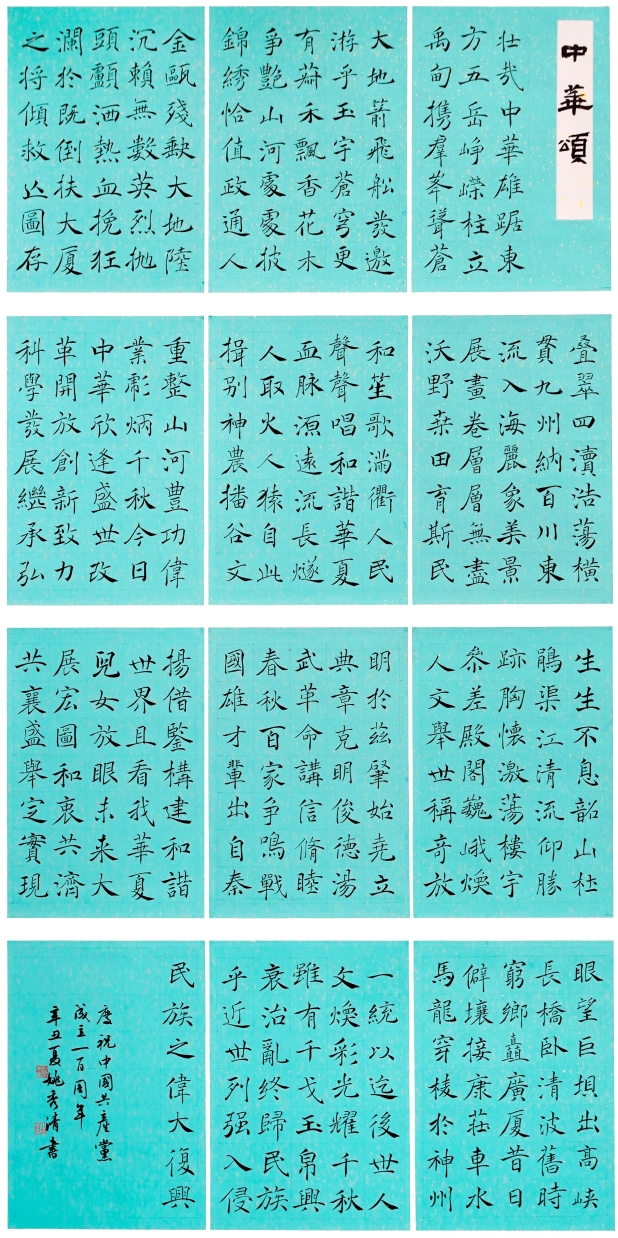 中華頌
壮哉中華雄踞東
方五岳峥嶸柱立
禹甸攜羣峯聳蒼
叠翠四瀆浩蕩橫
貫九州納百川東
流入海麗象美景
展畫卷層層無盡
沃野桒田育斯民
生生不息韶山杜
鵑渠江清流仰勝
跡胸懷激蕩樓宇
叅差殿閣巍峨煥
人文舉世稱奇放
眼望巨垻出高峽
長橋卧清波舊時
窮鄉矗廣厦昔日
僻壤接康莊車水
馬龍穿梭於神州
大地箭飛船發遨
游乎玉宇蒼穹更
有禾飄香花木
爭艷山河處處披
錦綉恰值政通人
和笙歌滿衢人民
聲聲唱和諧華夏
血脉源遠流長燧
人取火人猿自此
揖别神農播谷文
明於兹肇始堯立
典章克明俊德湯
武革命講信脩睦
春秋百家爭鳴戰
國雄才輩出自秦
一統以迄後世人
文煥彩光耀千秋
雖有干戈玉帛興
衰治亂終歸民族
乎近世列强入侵
金甌殘缺大地陸
沉賴無數英烈抛
頭顱洒熱血挽狂
瀾於既倒扶大厦
之将傾救亾圖存
重整山河豊功偉
業彪炳千秋今日
中華欣逢盛世改
革開放創新致力
科學發展繼承弘
揚借鋻構建和諧
世界且看我華夏
兒女放眼未来大
展宏圖和衷共濟
共襄盛舉定實現
民族之偉大復興
慶祝中國共產黨
成立一百周年
辛丑夏姚秀清書